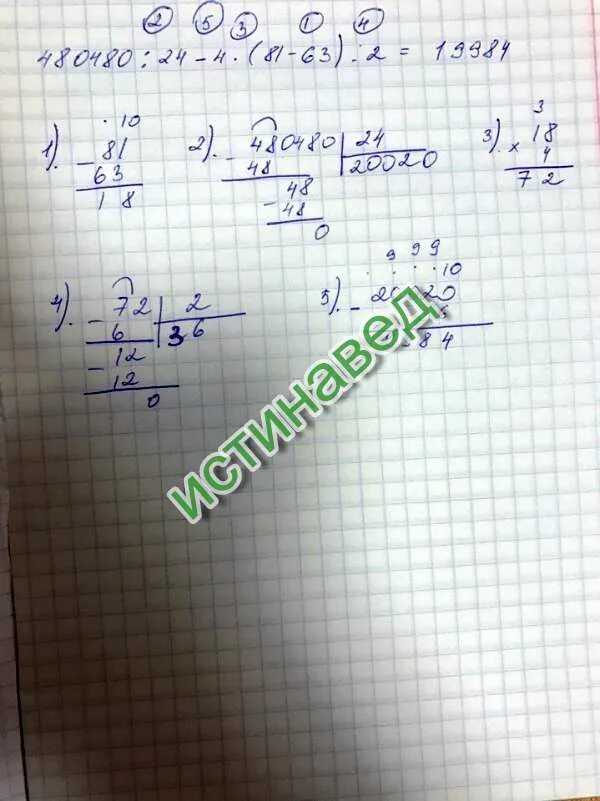 2 5 3 1 4
480480 : 24 - 4 · (81 - 63) : 2 = 19984
1). · 10
- 81
63
18
2). - 480480 | 24
48 20020
48
- 48
0
3). 3
18
× 4
72
4). - 72 | 2
6 36
- 12
12
0
5). 9 9 9
· · · · 10
- 20 20
84
истинавед